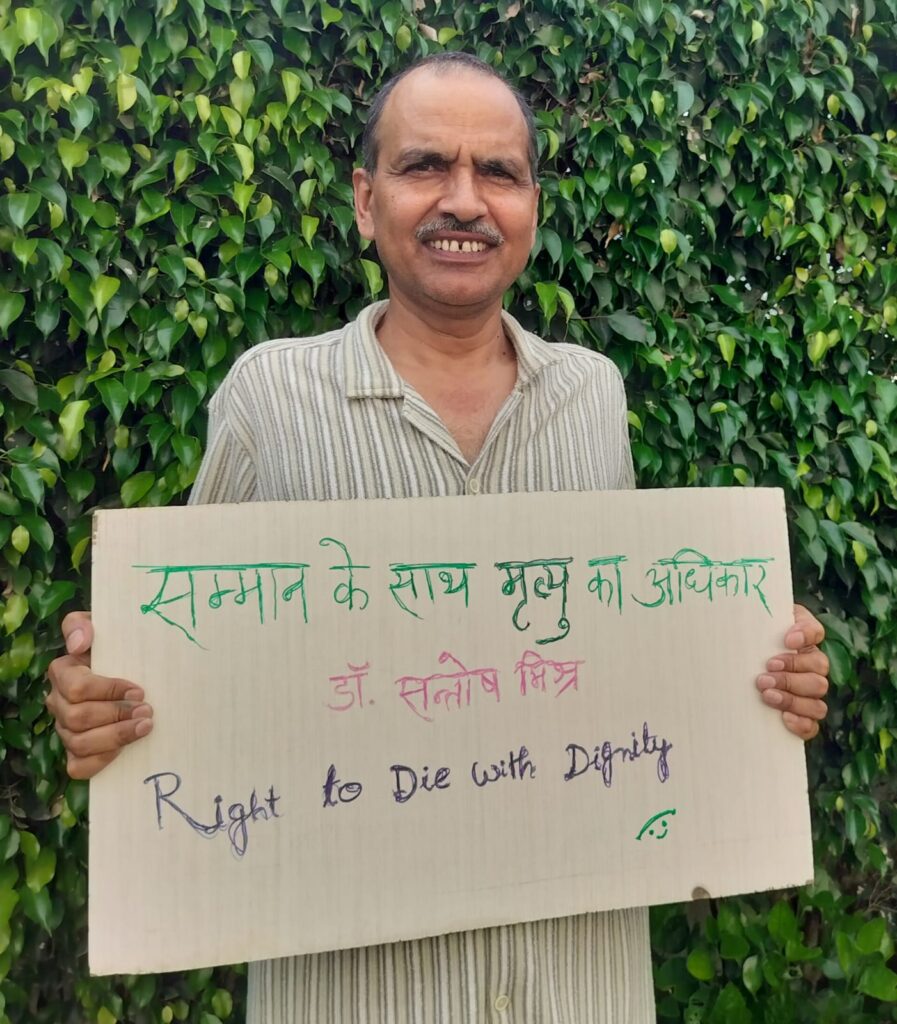 सम्मान के साथ मृत्यु का अधिकार
डॉ. सन्तोष मिश्र
Right to Die with Dignity